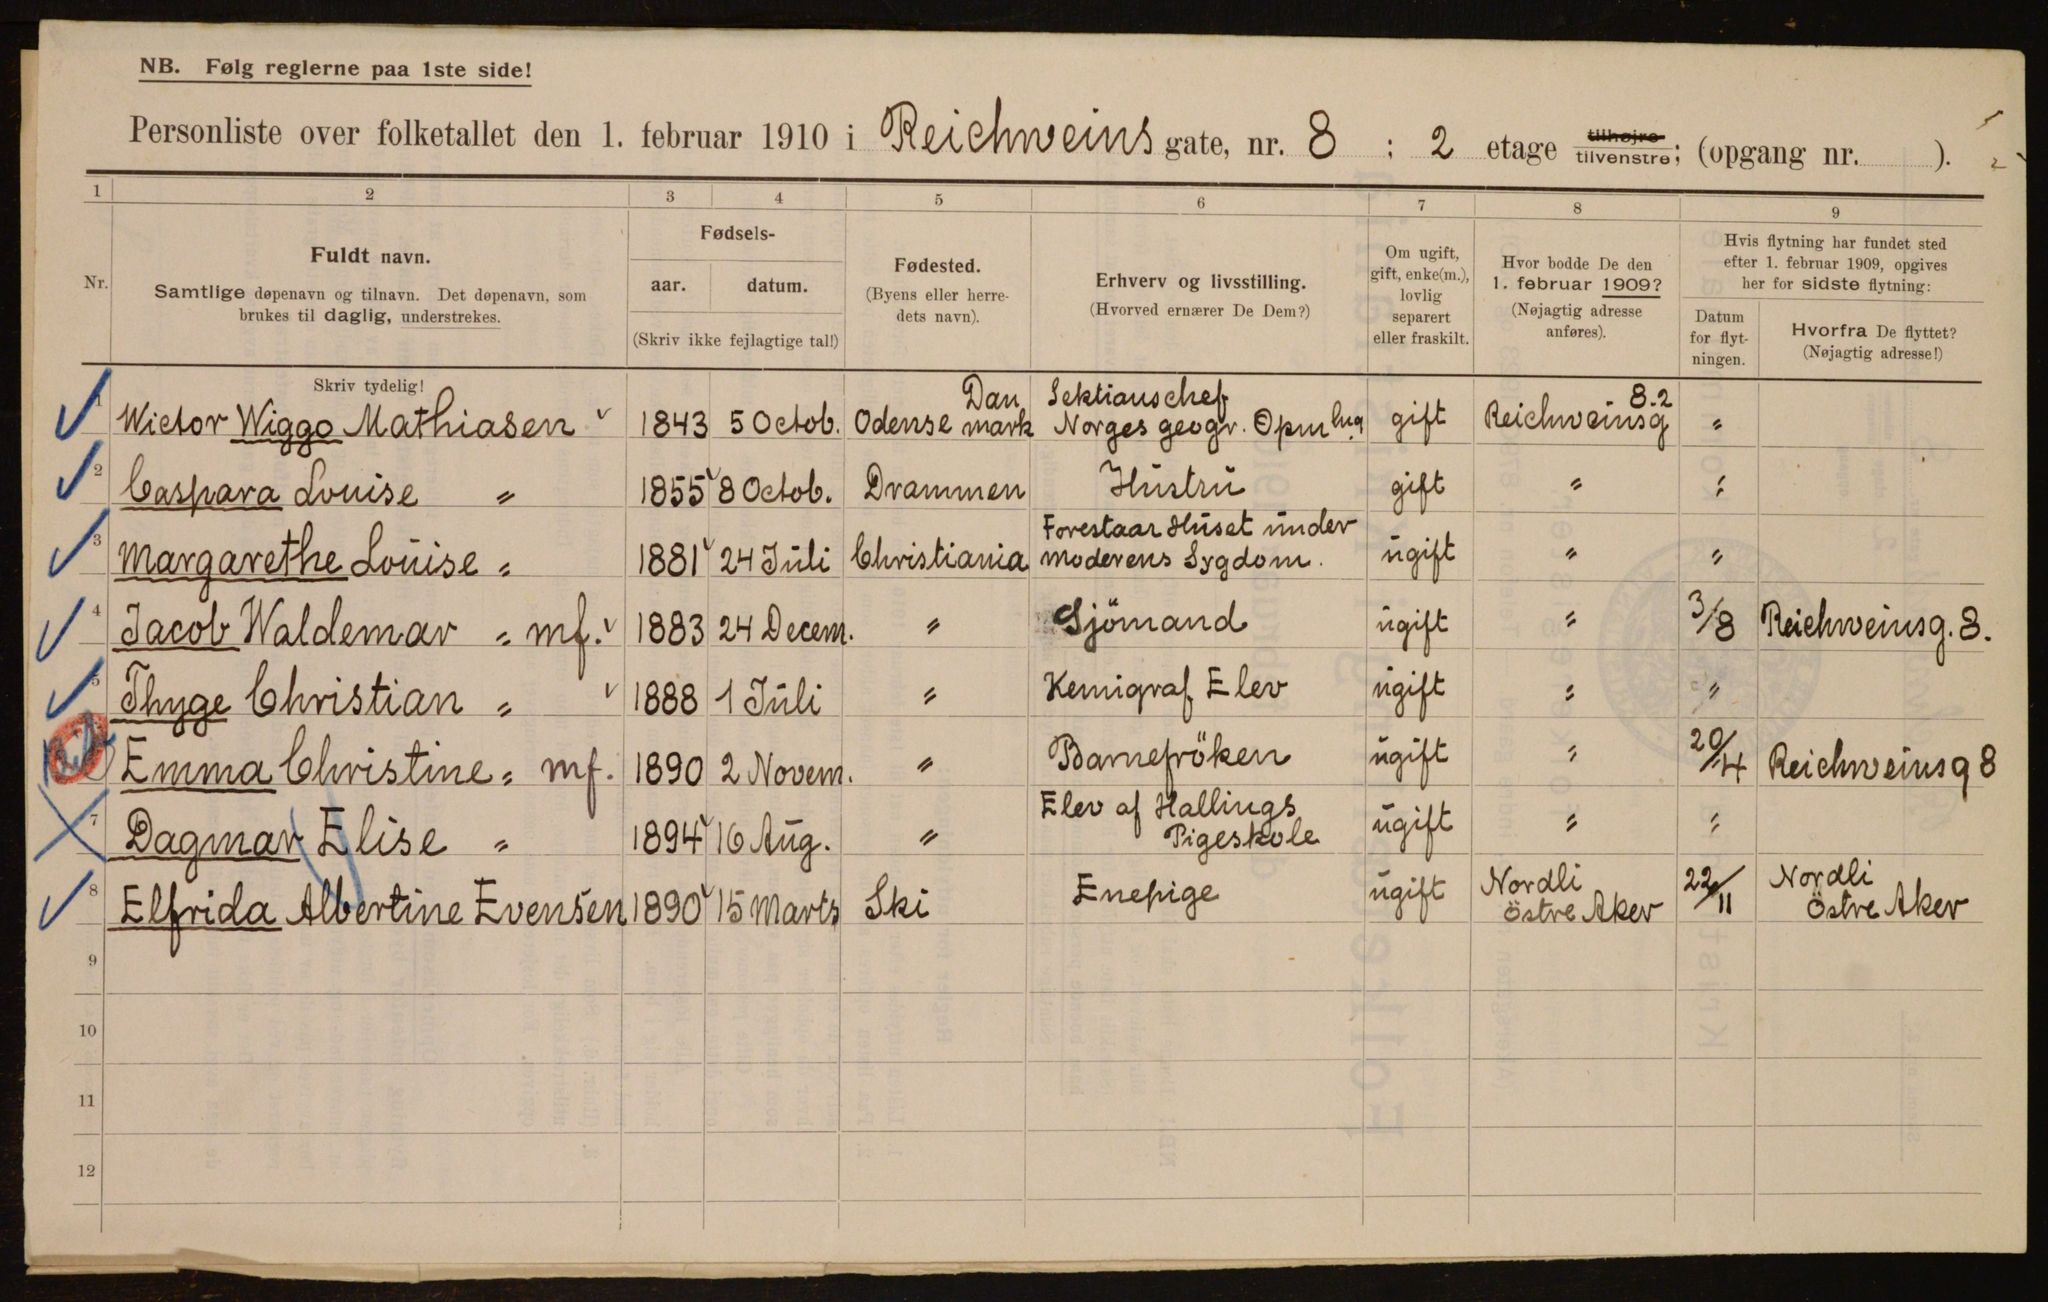 NB. Følg reglerne paa 1ste side!
Personliste over folketallet den 1. februar 1910 i Reichweins gate, nr. 8 ; 2 etage tilhøjre tilvenstre; (opgang nr. ).
1 2 3 4 5 6 7 8 9
Nr.
Fuldt navn.
Samtlige døpenavn og tilnavn. Det døpenavn, som
brukes til daglig, understrekes.
Fødsels-
aar. datum.
(Skriv ikke fejlagtige tal!)
Fødested.
(Byens eller herre-
dets navn).
Erhverv og livsstilling.
(Hvorved ernærer De Dem?)
Om ugift,
gift, enke(m.),
lovlig
separert
eller fraskilt.
Hvor bodde De den
1. februar 1909?
(Nøjagtig adresse
anføres).
Hvis flytning har fundet sted
efter 1. februar 1909, opgives
her for sidste flytning:
Datum
for flyt-
ningen.
Hvorfra De flyttet?
(Nøjagtig adresse!)
Skriv tydelig!
1 Wictor Wiggo Mathiasen 1843 5 Octob. Odense Danmark Sektionschef Norges geogr. Opmlng gift Reichweinsg 8.2 "
2 Caspara Louise " 1855 8 Octob. Drammen Hustru gift " "
3 Margarethe Louise " 1881 24 Juli Christiania Forestaar Huset under moderens Sygdom. ugift " "
4 Jacob Waldemar " mf. 1883 24 Decem. " Sjömand ugift " 3/8 Reichweinsg. 8.
5 Thyge Christian " 1888 1 Juli " Kemigraf Elev ugift " "
Emma Christine " mf. 1890 2 Novem. " Barnefröken ugift " 20/4 Reichweinsg 8
7 Dagmar Elise " 1894 16 Aug. " Elev af Hallings Pigeskole ugift " "
8 Elfrida Albertine Evensen 1890 15 Marts Ski Enepige ugift Nordli östre Aker 22/11 Nordli Östre Aker
9
10
11
12